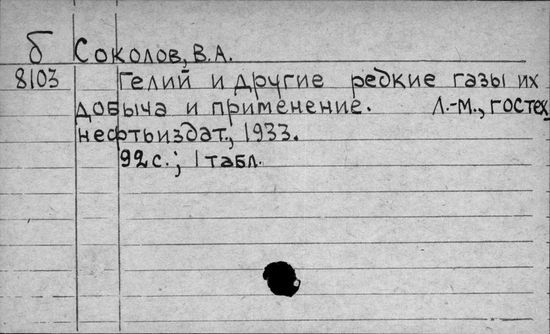 б Соколов, В.А.
8103 Гелий и другие редкие газы их
добыча и применение. Л.-М., гостех
нефтьиздат, 1933.
92с.; 1 табл.